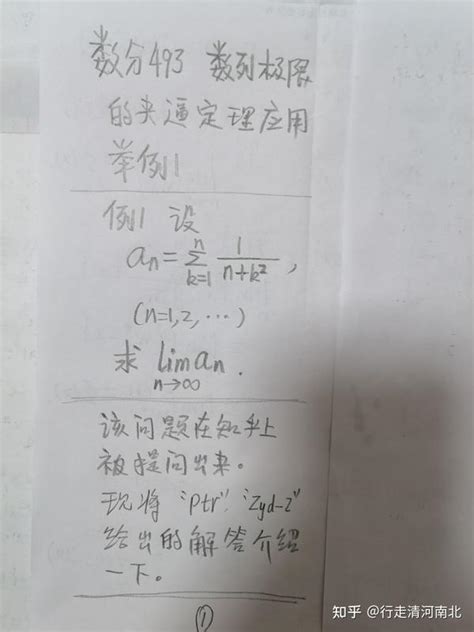 数分493 数列极限
的夹逼定理应用
举例1
例1 设
aₙ=∑ₖ₌₁ⁿ 1/(n+k²),
(n=1,2,…)
求 lim aₙ.
n→∞
该问题在知乎上
被提问出来。
现将“Ptr”，“Zyd-z”
给出的解答介绍
一下。
①
知乎 @行走清河南北